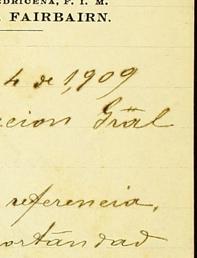 EDRICENA, F. I. M.
FAIRBAIRN.
4 de 1,909
acion Gräl
referencia,
ortandad